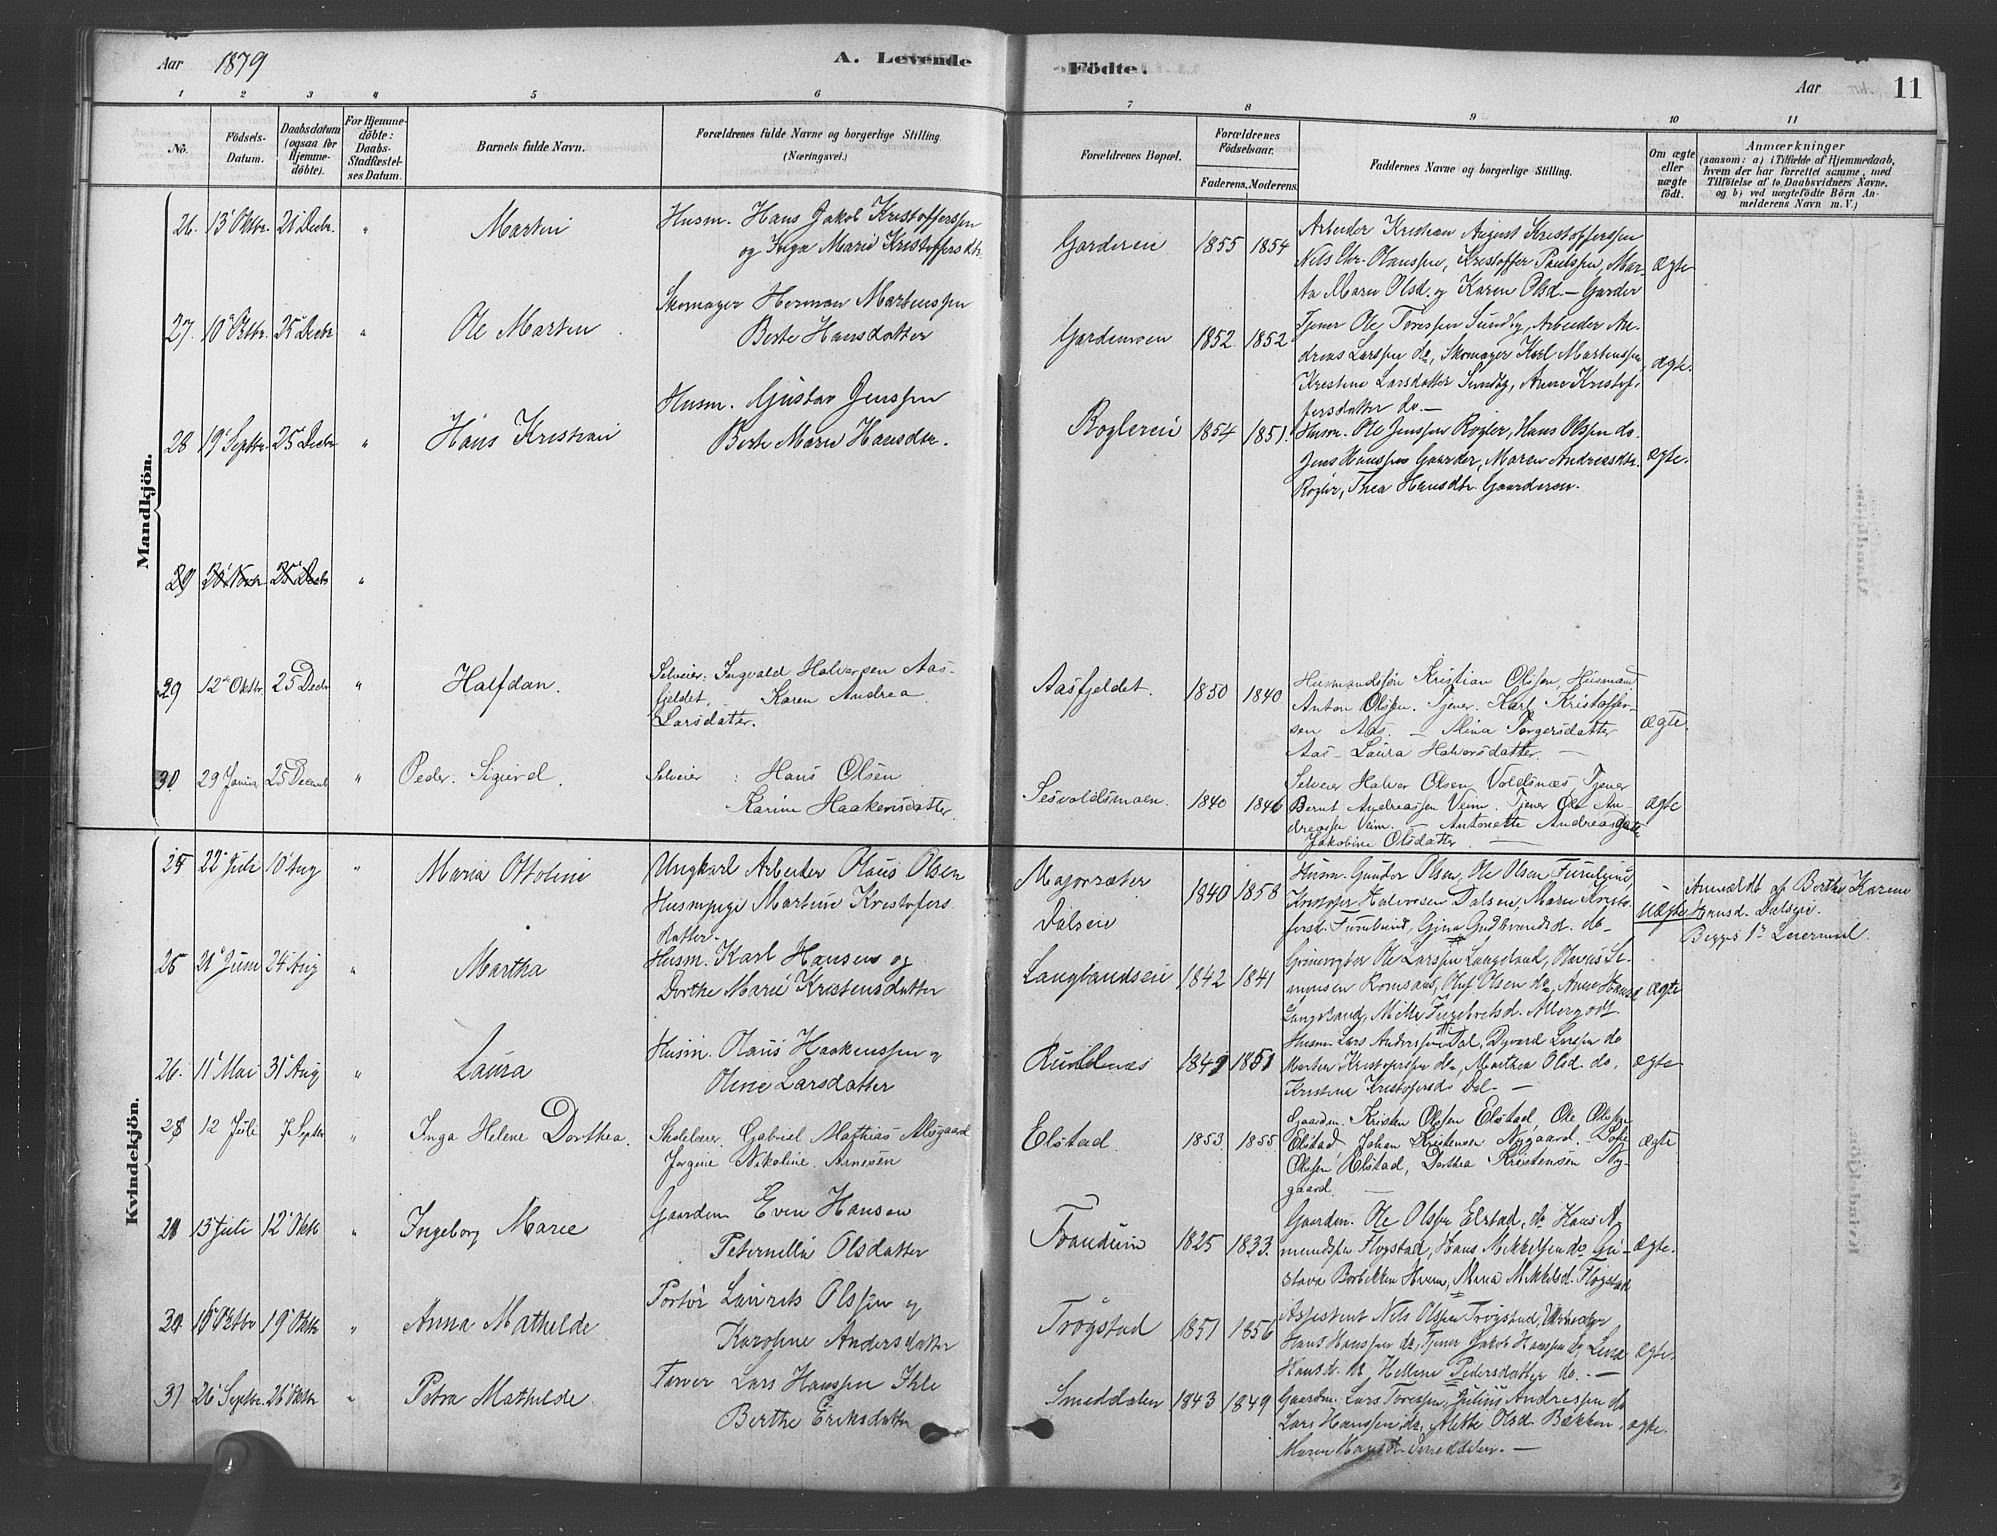 Aar 1879
A. Levende
Födte.
Aar
11
1 2 3 4 5 6 7 8 9 10 11
No.
Födsels-Datum.
Daabsdatum (ogsaa for Hjemme-döbte).
For Hjemme-döbte: Daabs-Stadfæstel-ses Datum.
Barnets fulde Navn.
Forældrenes fulde Navne og borgerlige Stilling.
(Næringsvei.)
Forældrenes Bopæl.
Forældrenes Födselsaar.
Faderens. Moderens.
Faddernes Navne og borgerlige Stilling.
Om ægte eller uægte födt.
Anmærkninger
(saasom: a) i Tilfælde af Hjemmedaab,
hvem der har forrettet samme, med
Tilföielse af to Daabsvidners Navne,
og b) ved uægtefödte Börn An-
melderens Navn m. V.)
Mandkjön.
26. 13' Oktbr. 21 Decbr. " Martin
Husm. Hans Jakob Kristofferssen
og Inga Marie Kristoffersdtr.
Garderein 1855 1854
Arbeider Kristian August Kristofferssen
Nils Chr. Olanssen, Kristoffer Paulssen, Mar-
ta Marn Olsd. og Karen Olsd. - Garder
Ægte
27. 10' Oktbr. 25' Decbr " Ole Marten
Skomager Herman Martenssen
Berte Hansdatter
Gardermoen 1852. 1852
Tjener Ole Toressen Sundby, Arbeider An-
dreas Larssen do, Skomager Karl Martenssen,
Kristine Larsdatter Sundby, Anne Kristof-
fersdatter do. -
ægte.
28 19' Septbr. 25 Decbr " Hans Kristian
Husm. Gustav Jenssen
Berte Marie Hansdtr.
Roglerein 1854 1851.
Husm. Ole Jenssen Rogler, Hans Olssen do.
Jens Hanssen Gaarder, Maren Andreasdtr.
Rogler, Thea Hansdtr. Gaarderen.
ægte.
29 20' Novbr 25' Decbr "
29 12te Oktbr. 25 Decbr " Halfdan.
Selveier: Ingvald Halvorsen Aas-
fjeldet. Karen Andrea
Larsdatter.
Aasfjeldet. 1850 1840
Husmandssön Kristian Olssen, Husmand
Anton Olssen. Tjener. Karl Kristoffer-
sen Aas. - Mina Torgersdatter
Aas - Laura Halvorsdatter -
ægte.
30 29 Januar 25 Decemb " Peder. Sigurd.
Selveier : Hans Olsen
Karine Haakensdatter.
Sesvoldsmoen. 1840 1846
Selveier Halvor Olsen Voldsnæs Tjener
Bernt Andreassen Veim. Tjener Ole An-
dreassen Veim. - Antonette Andreasdatter
Jakobine Olsdatter -
ægte
Kvindekjön.
22' Juli 10' Aug " Maria Ottoline
Ungkarl Arbeider Olaus Olsen
Huspige Martine Kristofers
datter.
Majorsæter
Dalsein
1840 1858
Husm. Gunder Olsen, Ole Olsen Furulund,
Kristoffer Halvorsen Dalsein, Maren Kristo-
fersd. Furulund, Gina Gudbrandsd. do -
Uægte
Anmeldt af Berthe Karine
Knusd. Dalsein.
Begges 1ste Leiermaal.
25 21' Juni 24' Aug " Martha
Husm. Karl Hansen og
Dorthe Marie Kristensdatter
Langlandseie 1842 1841
Grimvogter Ole Larssen Langeland, Olaus Si-
monsen Romsaas, Oluf Olsen do, Anne Hansd.
Langeland, Mille Ingebretsd. Algergodt
ægte
26. 11' Mai 31' Aug " Laura
Husm. Olaus Haakenssen og
Oline Larsdatter
Rundtnæs 1849 1851
Husm. Lars Anderssen Dal, Dyvard Larssen do
Marten Kristoferssen do, Marthea Olsd. do.
Kristine Kristofersd. Dal. -
ægte
28 12 Juli 7 Septbr " Inga Helene Dorthea.
Skolelærer. Gabriel Mathias Alsgaard
Jorgine Nikoline Arnesen
Elstad. 1853. 1855
Gaardm. Kristen Olssen Elstad, Ole Olssen
Elstad, Johan Kristensen Nygaard. - Sofie
Olssen Elstad, Dorthea Kristensen Ny-
gaard. -
ægte
13' Juli 12' Oktbr " Ingeborg Marie
Gaardm. Even Hansen
Peternille Olsdatter
Trandum 1825 1833.
Gaardm. Ole Olssen Elstad, do Hans A-
mundssen Flogstad, Hans Mikkelsen do Gu-
stava Borbekken Hvam, Maria Mikkelsd. Flogstad
ægte.
30 16' Oktbr 19' Oktbr " Anna Mathilde
Portør Laurits Olssen og
Karoline Andersdatter
Trøgstad 1851 1856
Assistent Nils Olssen Trøgstad, Arbeider
Hans Hanssen do, Tjener Jakob Hanssen do, Lina
Hansdr. do, Hellene Pedersdatter do. -
ægte.
31 26' Septbr. 26' Oktbr " Petra Mathilde
Farver Lars Hanssen Ihle
Berthe Eriksdatter
Smeddalen 1843 1849
Gaardm. Lars Toressen, Julius Andressen do
Lars Hanssen do, Alette Olsd. Bækken,
Maren Hansd. Smeddalen. -
ægte.